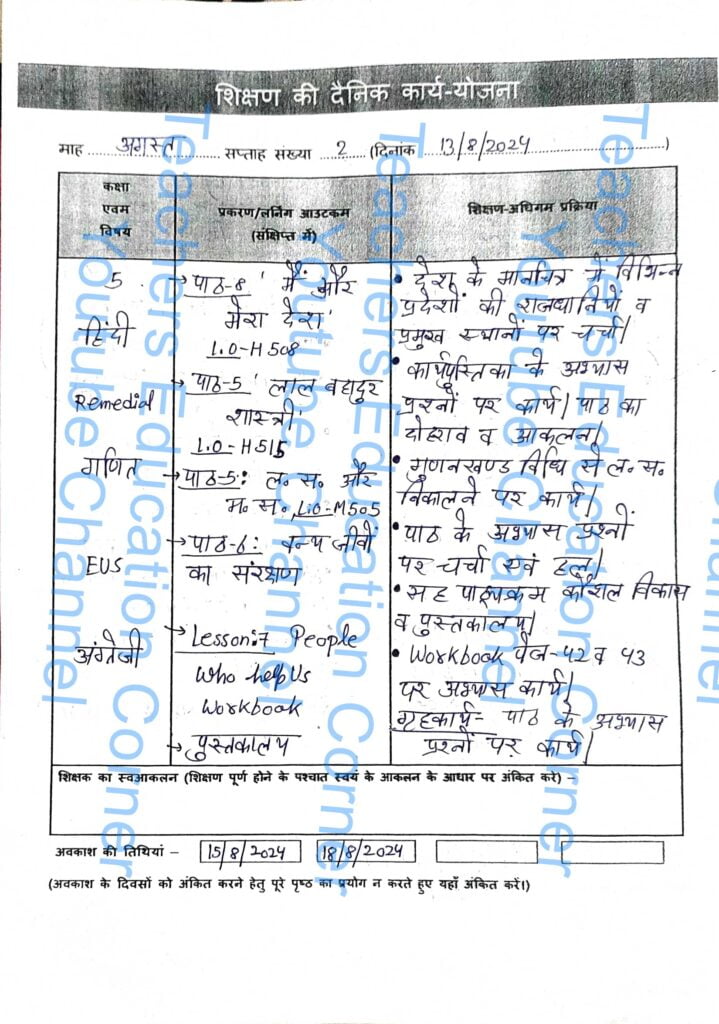 शिक्षण की दैनिक कार्य-योजना
माह अगस्त सप्ताह संख्या 2 (दिनांक 13/8/2024)
कक्षा
एवम
विषय
प्रकरण/लर्निंग आउटकम
(संक्षिप्त में)
शिक्षण-अधिगम प्रक्रिया
5
हिंदी
Remedial
गणित
EVS
अंग्रेजी
→ पाठ-8 'मैं और
मेरा देश'
L.O-H508
→ पाठ-5 'लाल बहादुर
शास्त्री'
L.O-H515
→ पाठ-5: ल. स. और
म. स., L.O-M505
→ पाठ-6: वन्य जीवों
का संरक्षण
→ Lesson:7 People
who help Us
Workbook
→ पुस्तकालय
• देश के मानचित्र में विभिन्न
प्रदेशों की राजधानियों व
प्रमुख स्थानों पर चर्चा।
• कार्यपुस्तिका के अभ्यास
प्रश्नों पर कार्य। पाठ का
दोहराव व आकलन।
• गुणनखण्ड विधि से ल. स.
निकालने पर कार्य।
• पाठ के अभ्यास प्रश्नों
पर चर्चा एवं हल।
• सह पाठ्यक्रम कौशल विकास
व पुस्तकालय।
• Workbook पेज-42 व 43
पर अभ्यास कार्य।
गृहकार्य- पाठ के अभ्यास
प्रश्नों पर कार्य।
शिक्षक का स्वआकलन (शिक्षण पूर्ण होने के पश्चात स्वयं के आकलन के आधार पर अंकित करे) –
अवकाश की तिथियां – 15/8/2024 18/8/2024
(अवकाश के दिवसों को अंकित करने हेतु पूरे पृष्ठ का प्रयोग न करते हुए यहाँ अंकित करें।)
Teachers Education Corner
Youtube Channel
Teachers Education Corner
Youtube Channel
Teachers Education Corner
Youtube Channel